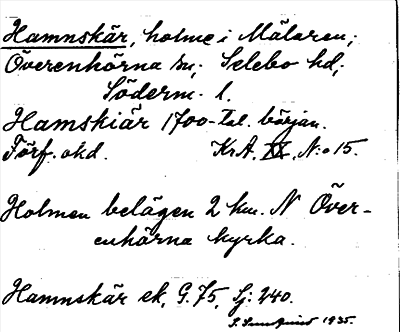 Hamnskär, holme i Mälaren;
Överenhörna sn; Selebo hd;
Söderm. l.
Hamskiär 1700-tal. början.
Förf. okd. KrA. XX, N:o 15.
Holmen belägen 2 km. N Över-
enhörna kyrka.
Hamnskär ek, G.75, Sj: 240.
1935.